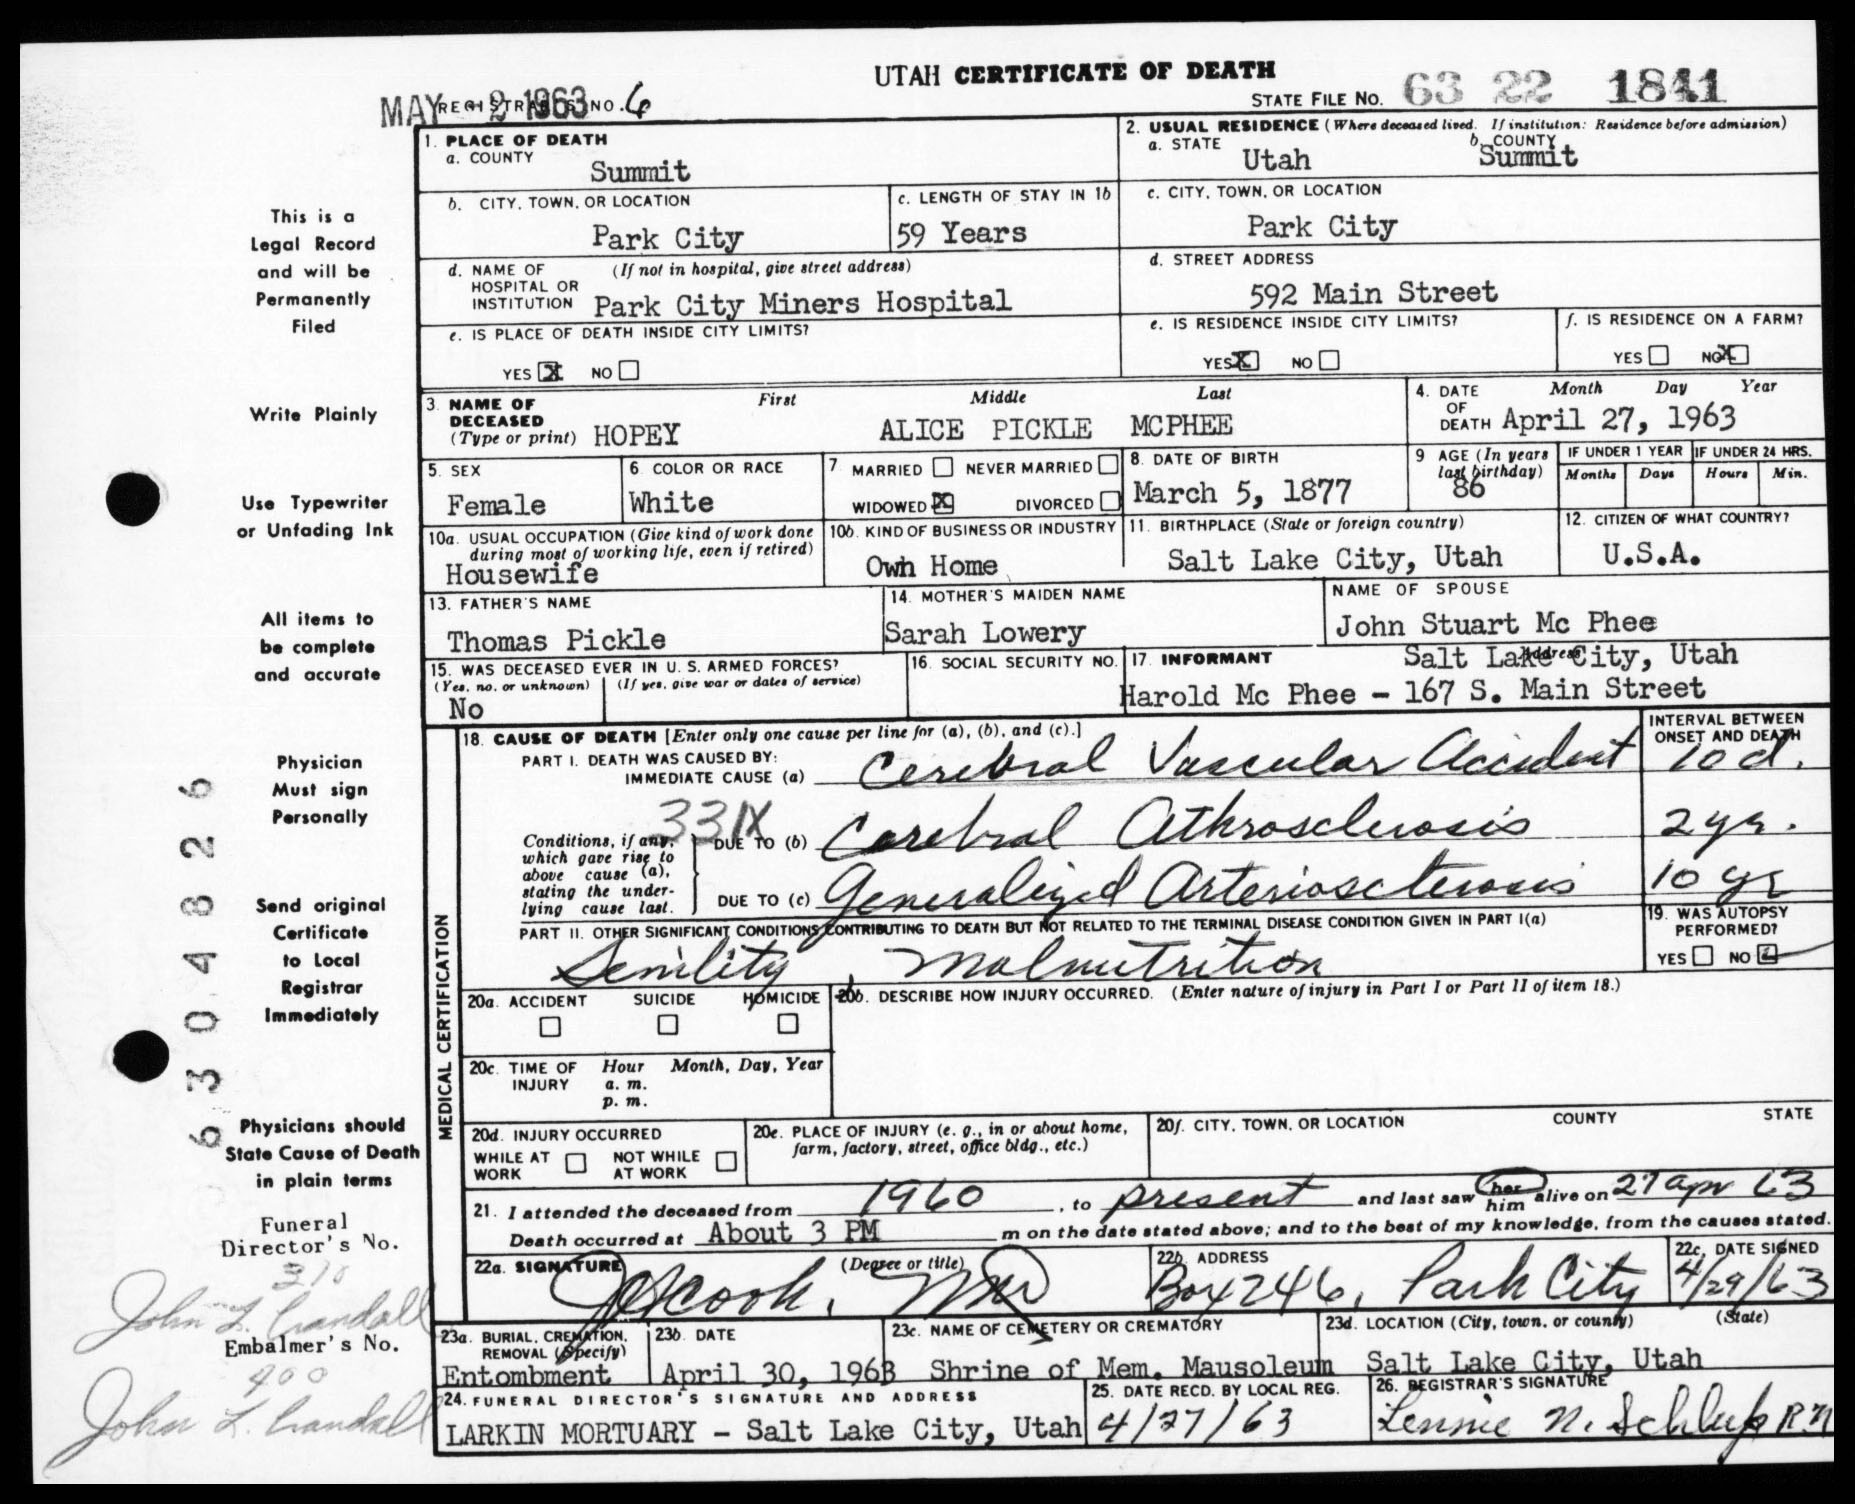 UTAH CERTIFICATE OF DEATH
MAY 2 1963
REGISTRAR'S NO. 6
STATE FILE NO. 63 22 1841
This is a
Legal Record
and will be
Permanently
Filed
Write Plainly
Use Typewriter
or Unfading Ink
All items to
be complete
and accurate
Physician
Must sign
Personally
Send original
Certificate
to Local
Registrar
Immediately
Physicians should
State Cause of Death
in plain terms
Funeral
Director's No.
310
John L. Crandall
Embalmer's No.
400
John L. Crandall
6304826
1. PLACE OF DEATH
a. COUNTY
Summit
2. USUAL RESIDENCE (Where deceased lived. If institution: Residence before admission)
a. STATE Utah
b. COUNTY Summit
b. CITY, TOWN, OR LOCATION
Park City
c. LENGTH OF STAY IN 1b
59 Years
c. CITY, TOWN, OR LOCATION
Park City
d. NAME OF (If not in hospital, give street address)
HOSPITAL OR
INSTITUTION Park City Miners Hospital
d. STREET ADDRESS
592 Main Street
e. IS PLACE OF DEATH INSIDE CITY LIMITS?
YES X NO
e. IS RESIDENCE INSIDE CITY LIMITS?
YES X NO
f. IS RESIDENCE ON A FARM?
YES NO X
3. NAME OF First Middle Last
DECEASED
(Type or print) HOPEY ALICE PICKLE MCPHEE
4. DATE Month Day Year
OF
DEATH April 27, 1963
5. SEX
Female
6 COLOR OR RACE
White
7 MARRIED NEVER MARRIED
WIDOWED X DIVORCED
8. DATE OF BIRTH
March 5, 1877
9 AGE (In years
last birthday)
86
IF UNDER 1 YEAR
Months Days
IF UNDER 24 HRS.
Hours Min.
10a. USUAL OCCUPATION (Give kind of work done
during most of working life, even if retired)
Housewife
10b. KIND OF BUSINESS OR INDUSTRY
Own Home
11. BIRTHPLACE (State or foreign country)
Salt Lake City, Utah
12. CITIZEN OF WHAT COUNTRY?
U.S.A.
13. FATHER'S NAME
Thomas Pickle
14. MOTHER'S MAIDEN NAME
Sarah Lowery
NAME OF SPOUSE
John Stuart Mc Phee
15. WAS DECEASED EVER IN U. S. ARMED FORCES?
(Yes, no, or unknown) (If yes, give war or dates of service)
No
16. SOCIAL SECURITY NO.
17. INFORMANT Address
Salt Lake City, Utah
Harold Mc Phee - 167 S. Main Street
MEDICAL CERTIFICATION
18. CAUSE OF DEATH [Enter only one cause per line for (a), (b), and (c).]
INTERVAL BETWEEN
ONSET AND DEATH
PART I. DEATH WAS CAUSED BY:
IMMEDIATE CAUSE (a) Cerebral Vascular Accident 10 d.
331X
Conditions, if any,
which gave rise to
above cause (a),
stating the under-
lying cause last.
DUE TO (b) Cerebral Athrosclerosis 2 yr.
DUE TO (c) Generalized Arteriosclerosis 10 yr
PART II. OTHER SIGNIFICANT CONDITIONS CONTRIBUTING TO DEATH BUT NOT RELATED TO THE TERMINAL DISEASE CONDITION GIVEN IN PART I(a)
Senility, Malnutrition
19. WAS AUTOPSY
PERFORMED?
YES NO
20a. ACCIDENT SUICIDE HOMICIDE
20b. DESCRIBE HOW INJURY OCCURRED. (Enter nature of injury in Part I or Part II of item 18.)
20c. TIME OF Hour Month, Day, Year
INJURY a. m.
p. m.
20d. INJURY OCCURRED
WHILE AT NOT WHILE
WORK AT WORK
20e. PLACE OF INJURY (e. g., in or about home,
farm, factory, street, office bldg., etc.)
20f. CITY, TOWN, OR LOCATION COUNTY STATE
21. I attended the deceased from 1960, to present and last saw her him alive on 27 apr 63
Death occurred at About 3 PM m on the date stated above; and to the best of my knowledge, from the causes stated.
22a. SIGNATURE (Degree or title)
Cook, MD
22b. ADDRESS
Box 246, Park City
22c. DATE SIGNED
4/29/63
23a. BURIAL, CREMATION,
REMOVAL (Specify)
Entombment
23b. DATE
April 30, 1963
23c. NAME OF CEMETERY OR CREMATORY
Shrine of Mem. Mausoleum
23d. LOCATION (City, town, or county) (State)
Salt Lake City, Utah
24. FUNERAL DIRECTOR'S SIGNATURE AND ADDRESS
LARKIN MORTUARY - Salt Lake City, Utah
25. DATE RECD. BY LOCAL REG.
4/27/63
26. REGISTRAR'S SIGNATURE
Lennie N. Schlup R.N